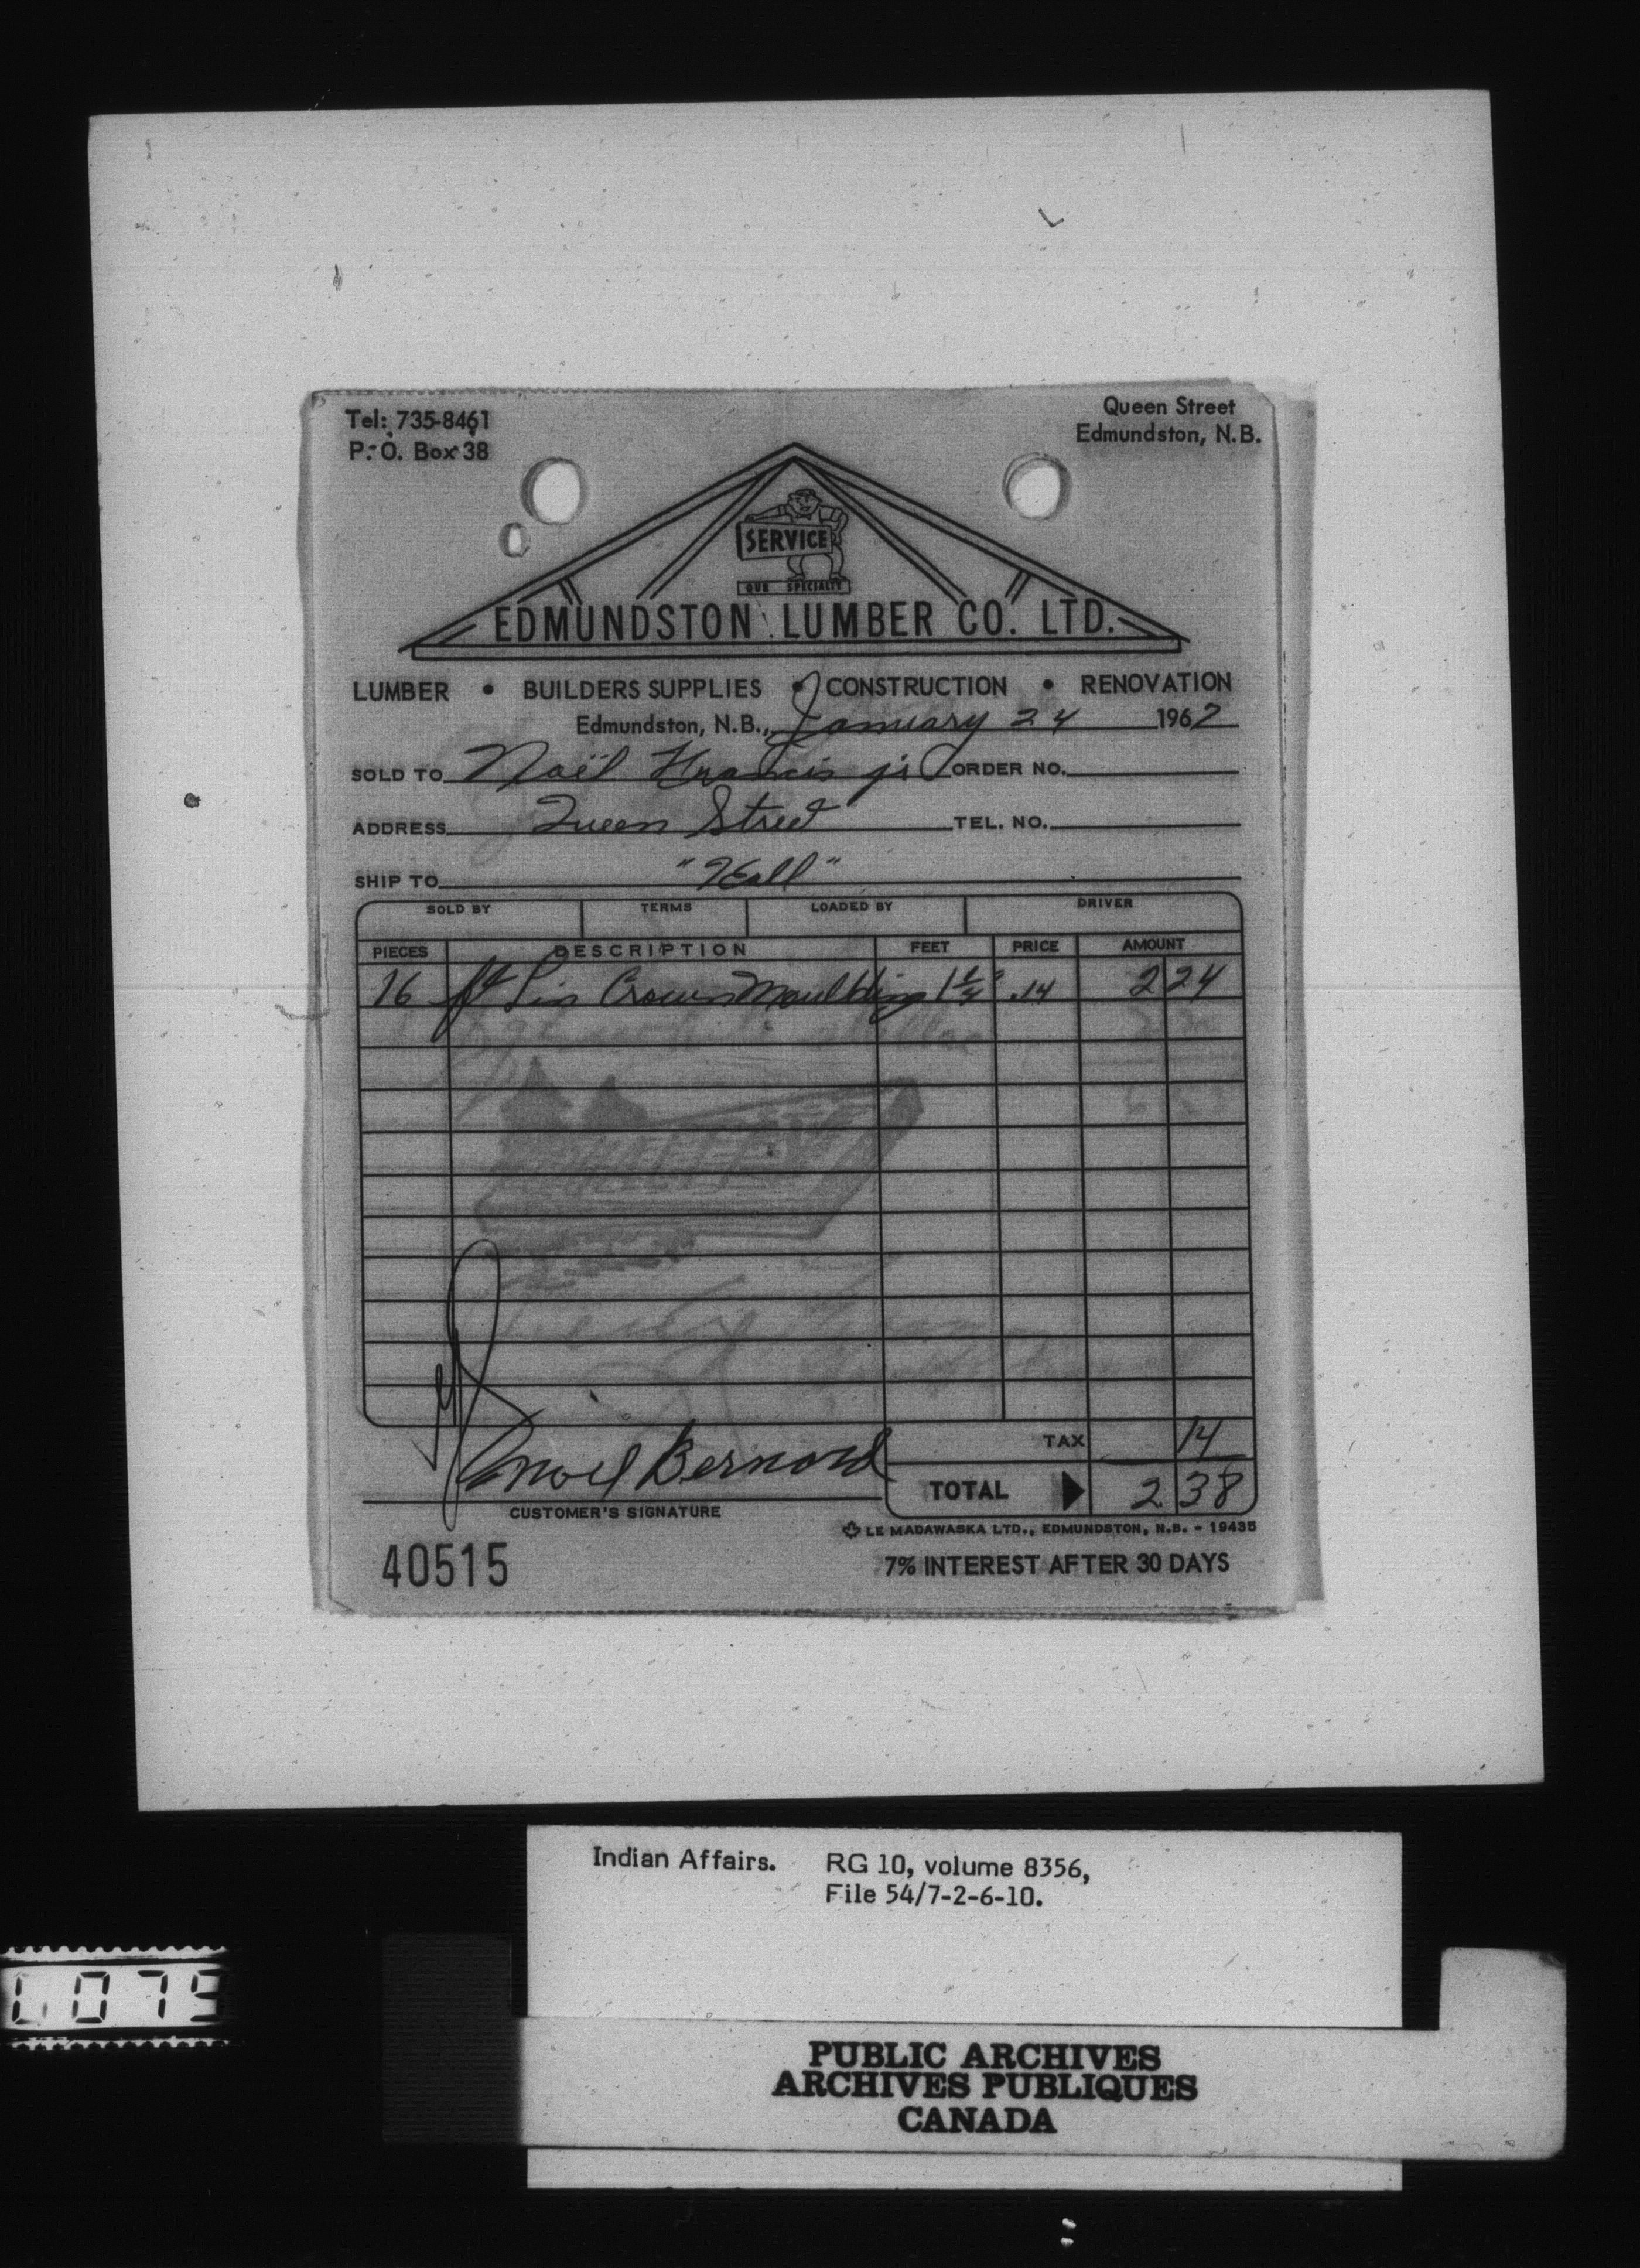 Tel: 735-8461
P. O. Box 38
Queen Street
Edmundston, N.B.
SERVICE
OUR SPECIALTY
EDMUNDSTON LUMBER CO. LTD.
LUMBER • BUILDERS SUPPLIES • CONSTRUCTION • RENOVATION
Edmundston, N.B., January 24 1967
SOLD TO Noël Francis jr ORDER NO.
ADDRESS Queen Street TEL. NO.
SHIP TO "Hall"
SOLD BY TERMS LOADED BY DRIVER
PIECES DESCRIPTION FEET PRICE AMOUNT
16 ft Lin Crown Moulding 1 3/4" .14 2 24
TAX 14
Noel Bernard
TOTAL 2.38
CUSTOMER'S SIGNATURE
LE MADAWASKA LTD., EDMUNDSTON, N.B. - 19435
40515
7% INTEREST AFTER 30 DAYS
Indian Affairs. RG 10, volume 8356,
File 54/7-2-6-10.
PUBLIC ARCHIVES
ARCHIVES PUBLIQUES
CANADA